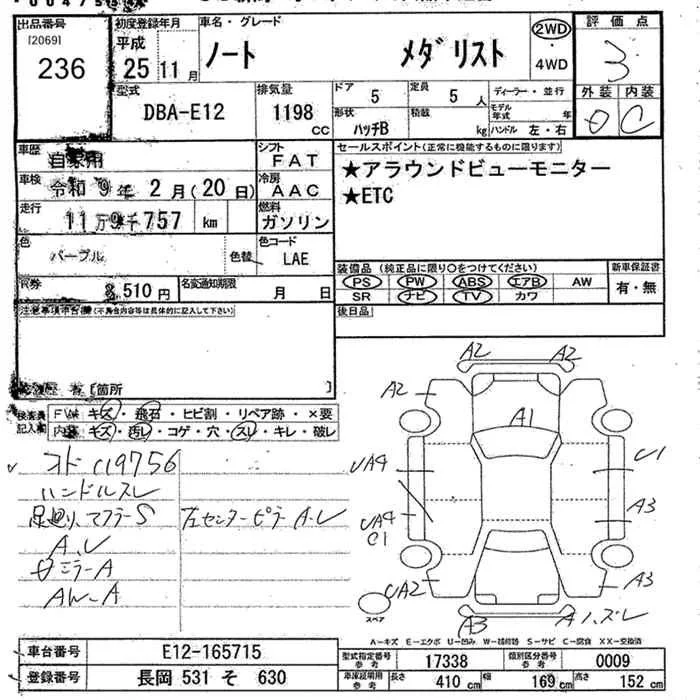 出品番号 初度登録年月 車名・グレード 評価点
[2069] 平成 2WD
236 25年 11月 ノート メダリスト ・4WD 3
外装 内装
型式 排気量 ドア 5 定員 5人 ディーラー・並行
DBA-E12 1198 cc 形状 ハッチB 積載 kg モデル年式 年 C
ハンドル 左・右
車歴 自家用 シフト FAT セールスポイント(正常に機能するものに限ります)
車検 令和 9年 2月(20日) 冷房 AAC ★アラウンドビューモニター
走行 11万9千757 km 燃料 ガソリン ★ETC
色 パープル 色替 色コード LAE
装備品(純正品に限り○をつけてください) 新車保証書
8,510円 名変通知期限 月 日 PS PW ABS エアB AW 有・無
SR ナビ TV カワ
注意事項申告欄(不具合内容等は具体的に記入して下さい) 後日品
有 [箇所 ]
検査員記入欄 FW キズ・飛石・ヒビ割・リペア跡・×要
内装 キズ・汚レ・コゲ・穴・スレ・キレ・破レ
A2 A2
A2 A1
UA4 U1
A3
UA4
C1
UA2 A3
A3 A1ハズレ
スペア
ハンドルスレ
足廻リ、マフラーS 左センターピラーA、U
A、U
ミラーA
A-キズ E-エクボ U-凹み W-補修跡 S-サビ C-腐食 XX-交換済
車台番号 E12-165715 型式指定番号 参考 17338 類別区分番号 参考 0009
登録番号 長岡 531 そ 630 車庫証明用 参考 長さ 410 cm 幅 169 cm 高さ 152 cm